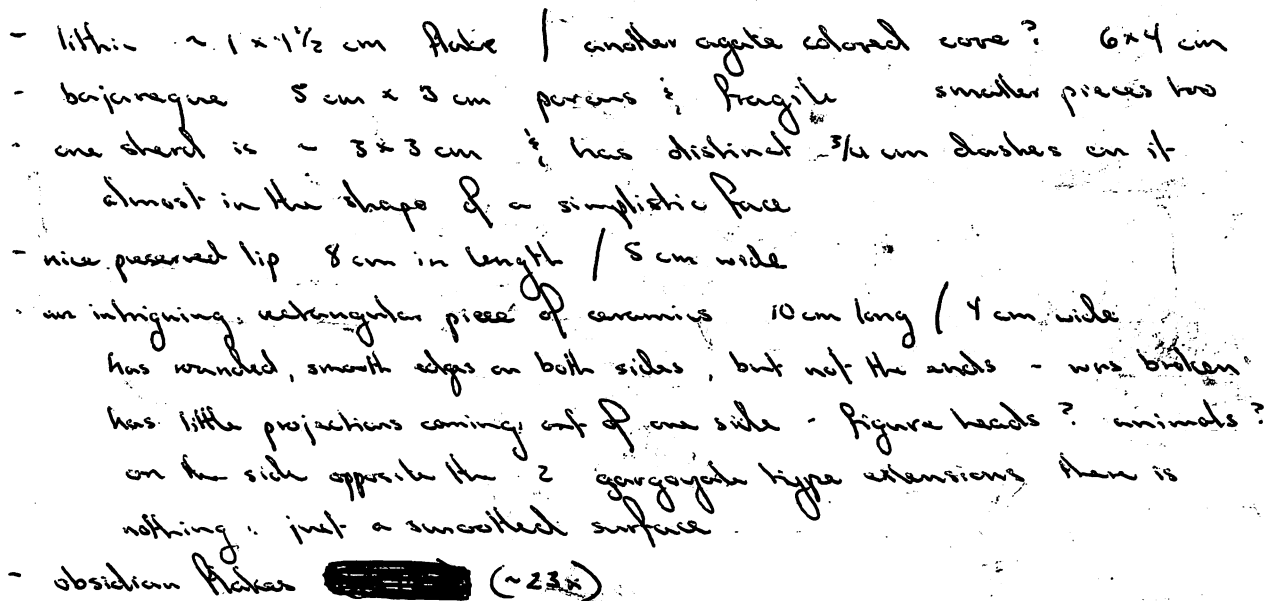 - lithic ~ 1 x 1 1/2 cm flake / another agate colored core? 6x4 cm
- bajareque 5 cm x 3 cm porous & fragile smaller pieces too
- one sherd is ~ 3x3 cm & has distinct ~3/4 cm dashes on it
almost in the shape of a simplistic face
- nice preserved lip 8 cm in length / 5 cm wide
- an intriguing, rectangular piece of ceramics 10 cm long / 4 cm wide
has rounded, smooth edges on both sides, but not the ends - was broken
has little projections coming out of one side - figure heads? animals?
on the side opposite the 2 gargoyale type extensions there is
nothing: just a smoothed surface.
- obsidian flakes (~23x)